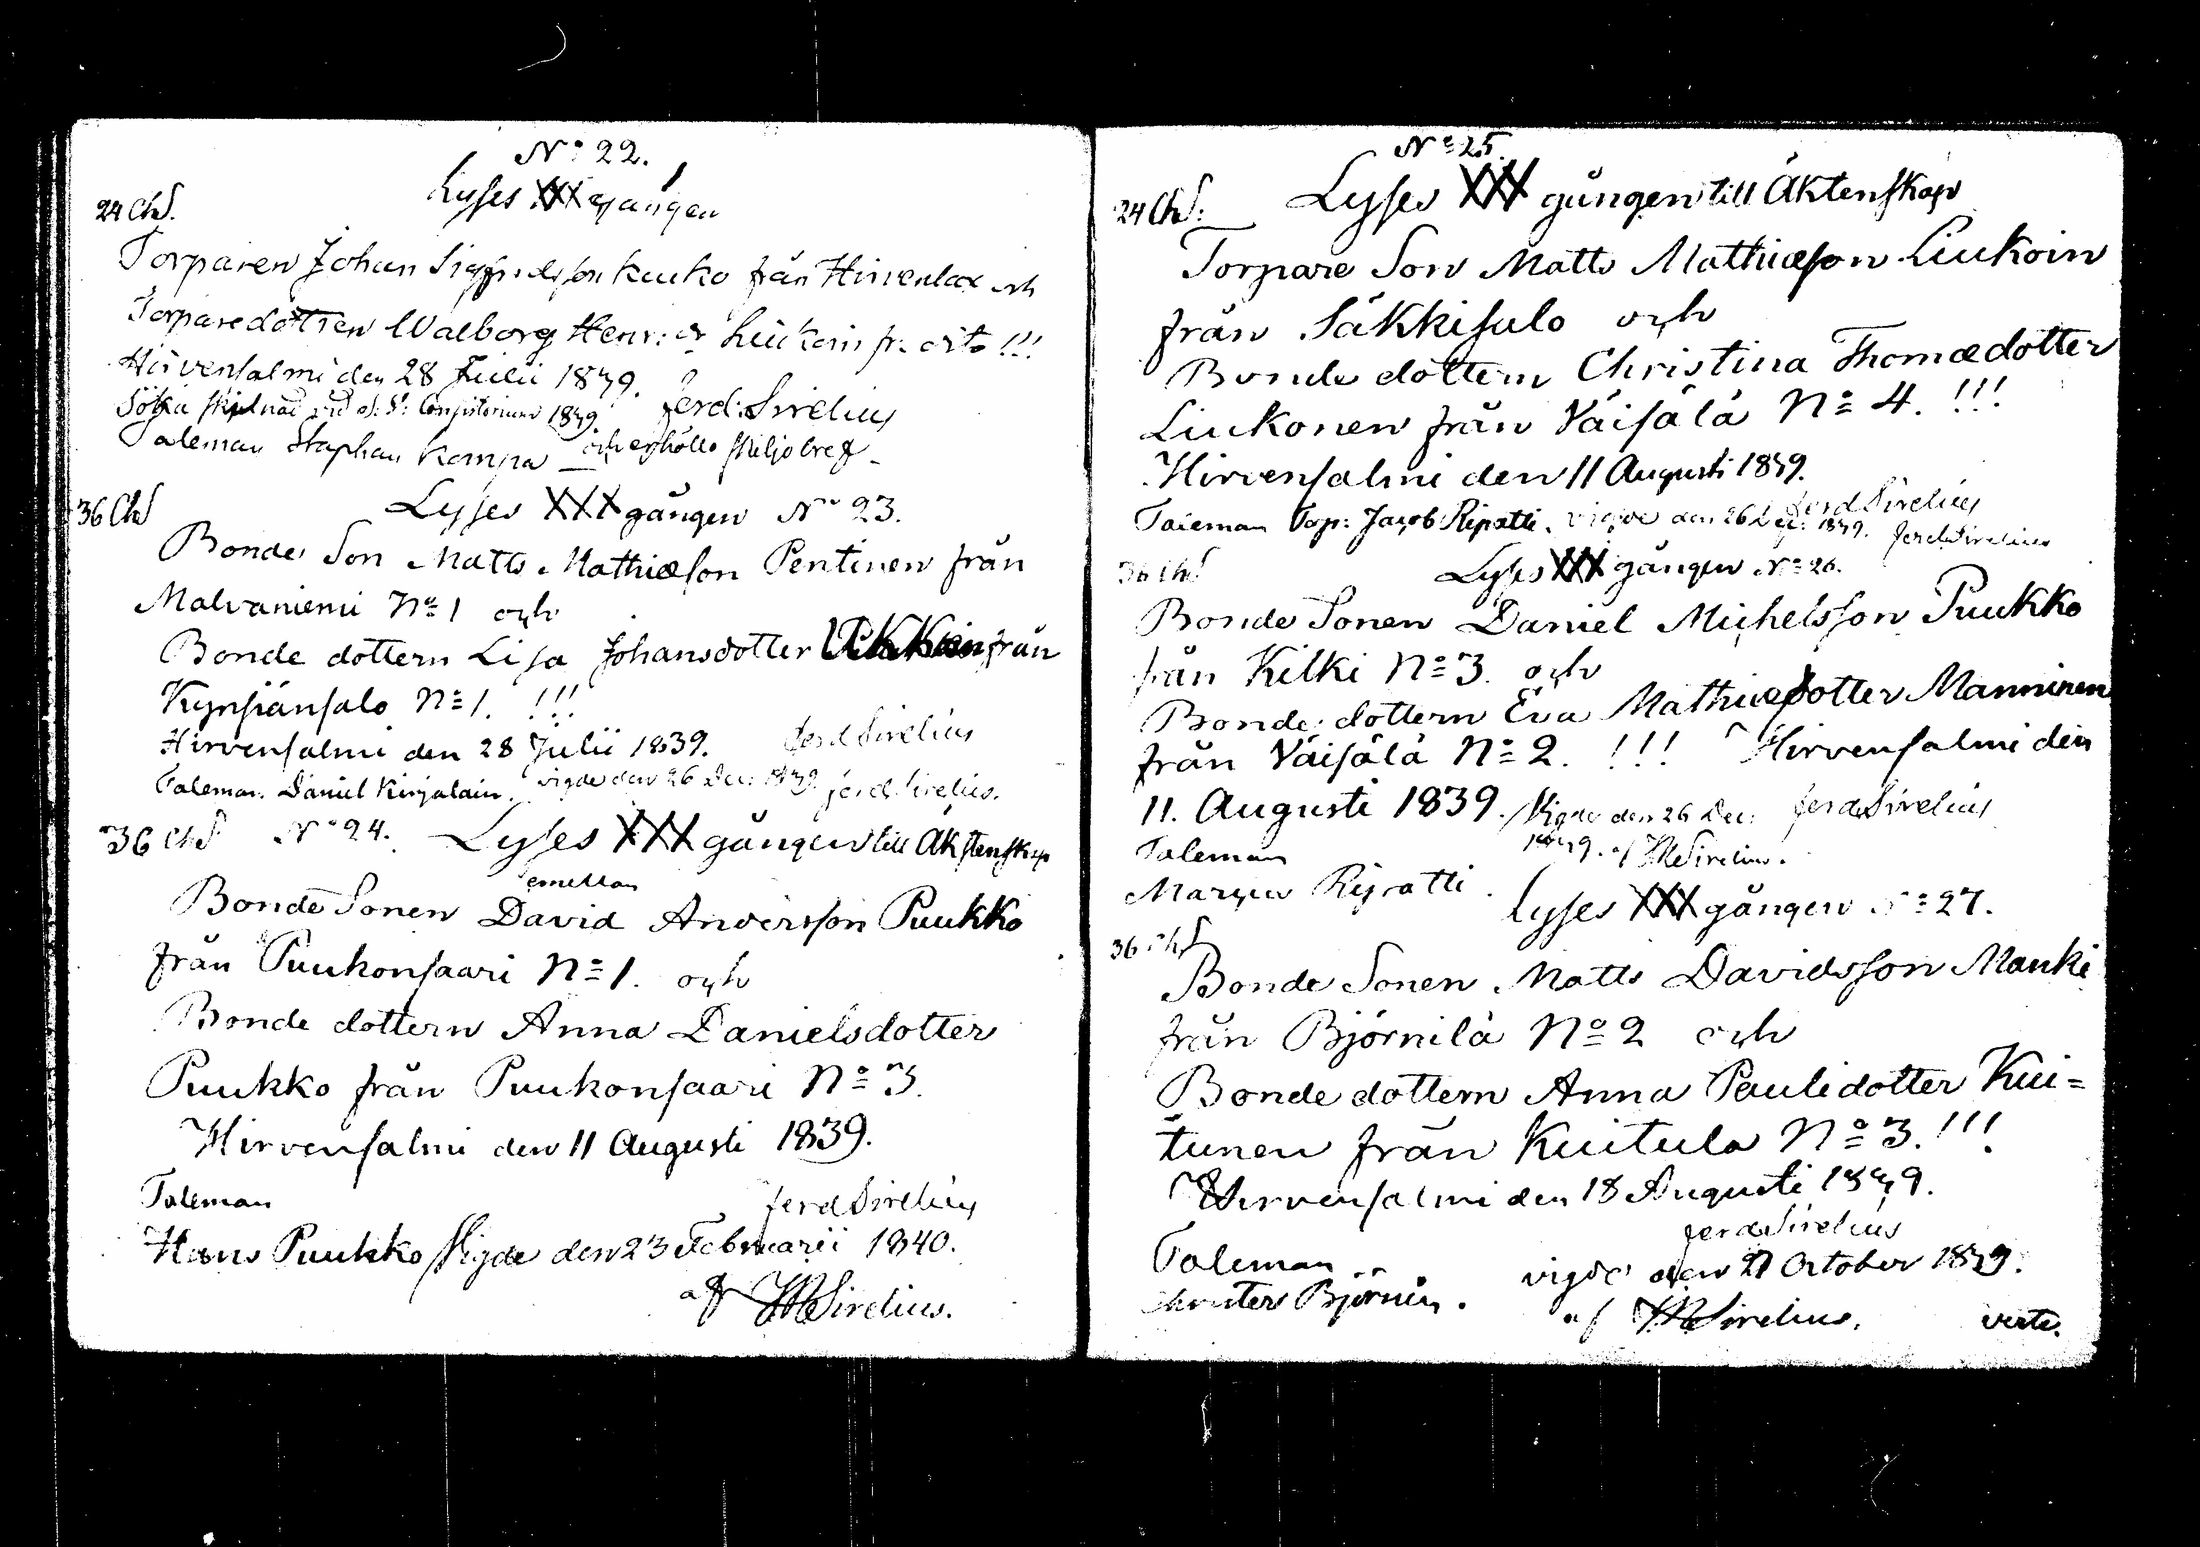 N:o 22.
Lyses XXX gången
24 Ch S.
Torparen Johan Sigfridsson Kuuko från Hirvenlax och
Torparedottren Walborg Henr: dr Liukoin fr. orto !!!
Hirvensalmi den 28 Julii 1839. Ferd: Sirelius
Söka skilnad vid Consistorium 1839
och erhöllo skiljobref
Taleman Staphan Kompa
Lyses XXX gången N:o 23.
36 Ch S
Bonde Son Matts Mathiæson Pentinen från
Malvaniemi No 1 och
Bonde dottern Lisa Johansdotter från
Kynsiänsalo No 1. !!!
Hirvensalmi den 28 Julii 1839. Ferd Sirelius
Taleman. Daniel Kirjalain. vigde den 26 Dec: 1839. Ferd. Sirelius.
36 Ch S N:o 24. Lyses XXX gången till Äktenskap
emellan
Bonde Sonen David Andersson Puukko
från Puukonsaari No 1. och
Bonde dottern Anna Danielsdotter
Puukko från Puukonsaari No 3.
Hirvensalmi den 11 Augusti 1839.
Taleman Ferd Sirelius
Hans Puukko /Vigde den 23 Februarii 1840.
af Sirelius.
No 25.
24 Ch S: Lyses XXX gången till Äktenskap
Torpare Son Matts Mathiæson Liukoin
från Säkkisalo och
Bonde dottern Christina Thomædotter
Liukonen från Väisälä No 4. !!!
Hirvensalmi den 11 Augusti 1839.
Ferd Sirelius
Taleman Torp: Jacob Ripatti. vigde den 26 Dec: 1839. Ferd. Sirelius
36 Ch S Lyses XXX gången No 26.
Bonde Sonen Daniel Michelsson Puukko
från Kilki No 3. och
Bonde dottern Eva Mathiædotter Manninen
från Väisälä No 2. !!! Hirvensalmi den
11. Augusti 1839. /Vigde den 26 Dec: Ferd Sirelius
1839. af Sirelius.
Taleman
Ripatti.
Lyses XXX gången No 27.
36 Ch S
Bonde Sonen Matts Davidsson Manki
från Björnilä No 2 och
Bonde dottern Anna Paulidotter Kui=
tunen från Kuitula No 3. !!!
Hirvensalmi den 18 Augusti 1839.
Ferd Sirelius
Taleman vigde den 27 October 1839.
Christer Björnin. af Sirelius. verte.